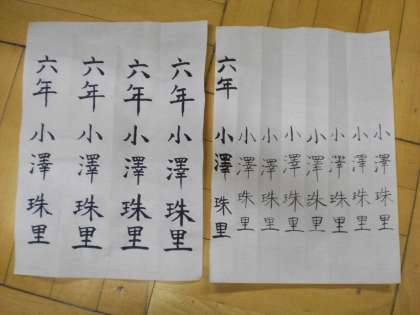 六年 小澤 珠里
六年 小澤 珠里
六年 小澤 珠里
六年 小澤 珠里
小澤珠里
小澤珠里
小澤珠里
小澤珠里
小澤珠里
小澤珠里
小澤珠里
六年 小澤珠里